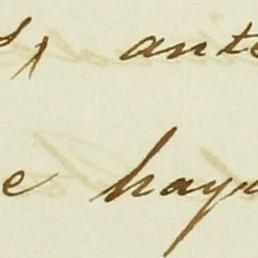 , ante
e haya